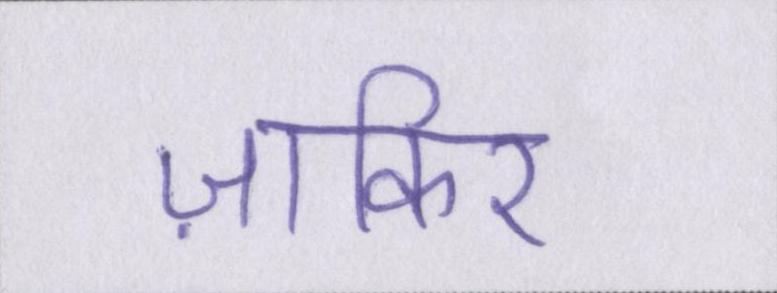 ज़ाकिर